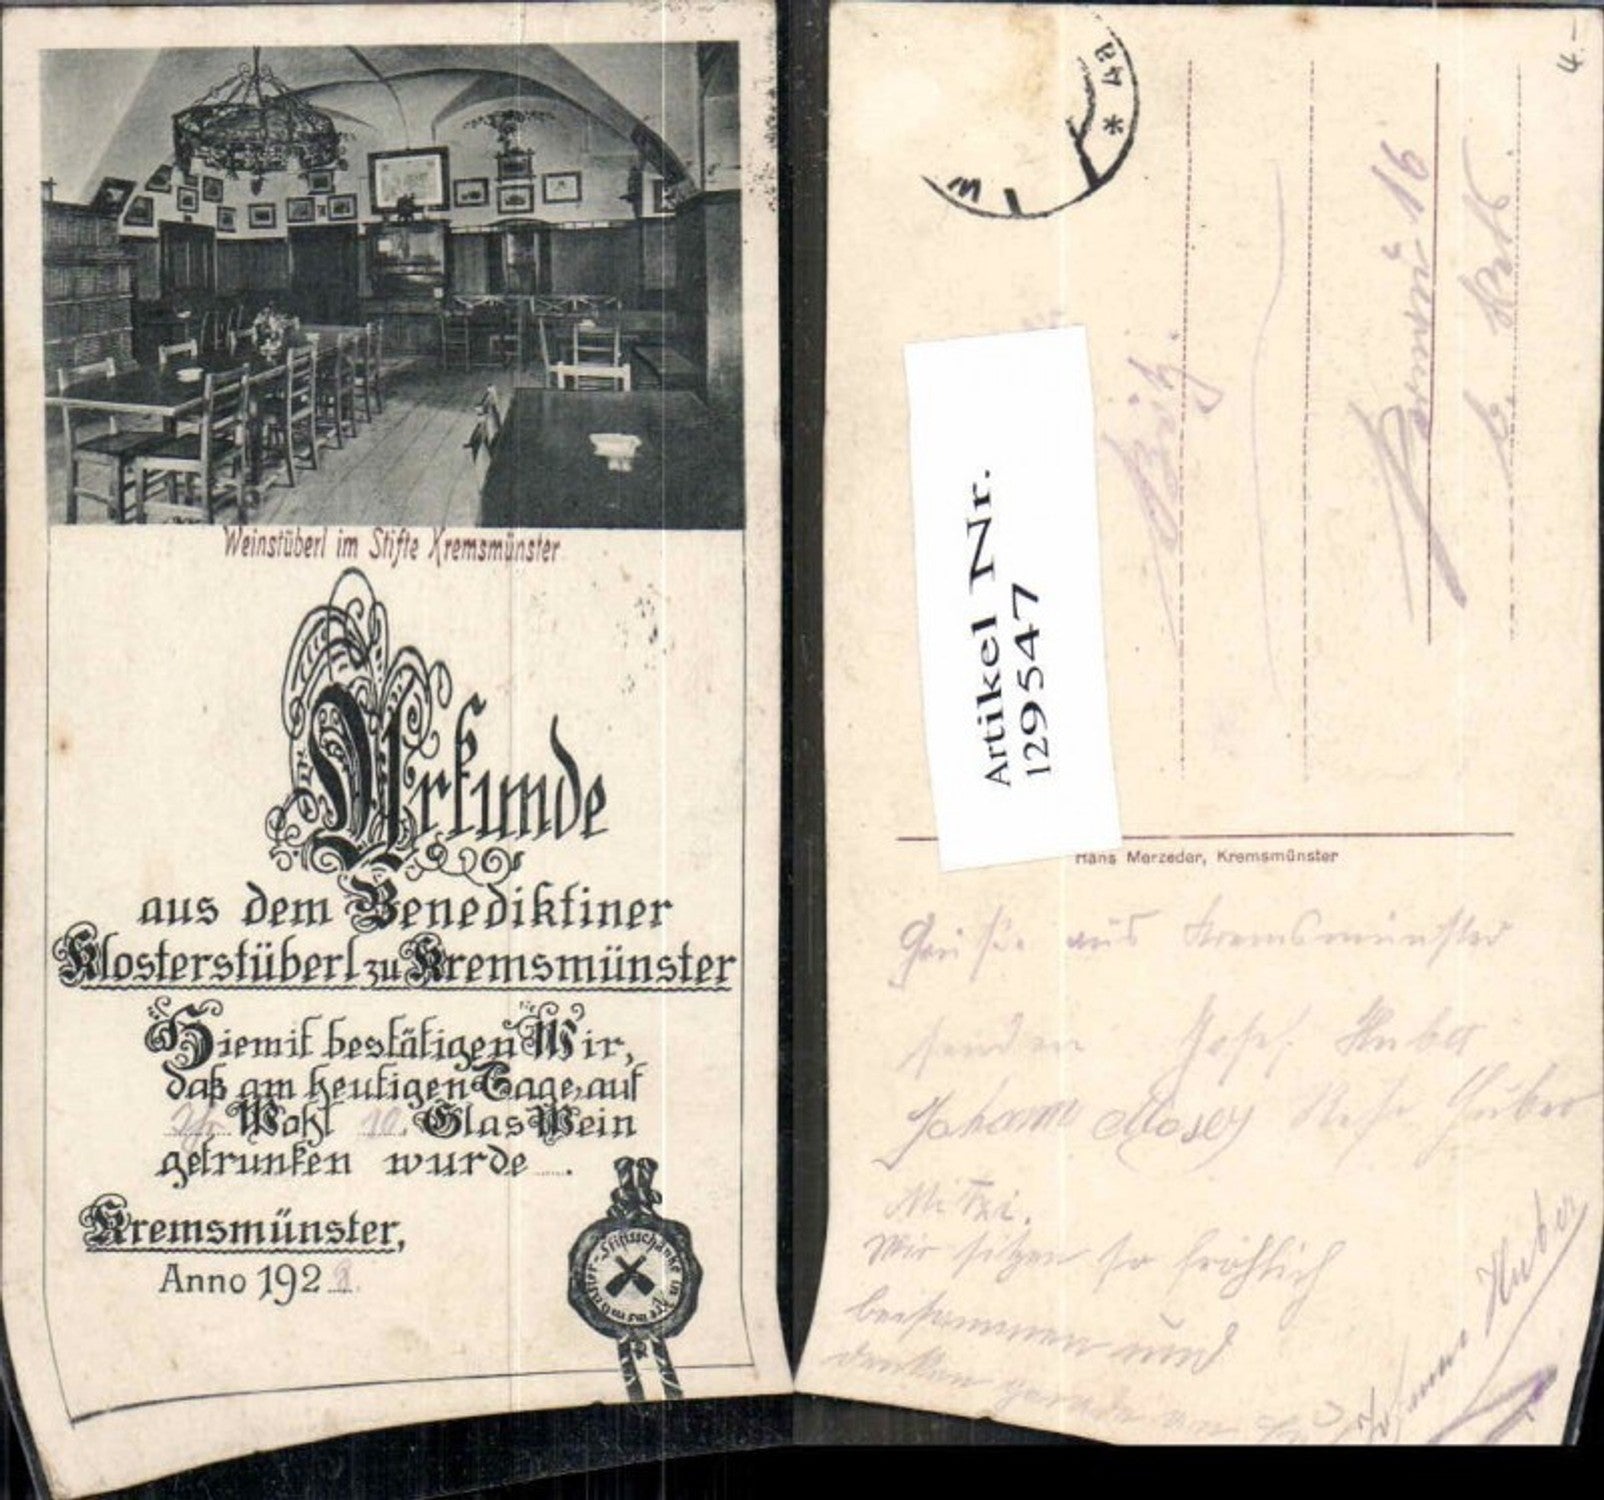 Weinstüberl im Stifte Kremsmünster
Urkunde
aus dem Benediktiner
Klosterstüberl zu Kremsmünster
Hiemit bestätigen Wir,
daß am heutigen Tage, auf
Ihr Wohl 10. Glas Wein
getrunken wurde .....
Kremsmünster,
Anno 192
Stiftsschänke in Kremsmünster
* 4a
4.-
Artikel Nr.
129547
16
Hans Merzeder, Kremsmünster
Grüße aus Kremsmünster
senden Josef Huber
Johann Moser Huber
Mitzi.
Wir sitzen so fröhlich
beisammen und
denken gerade an
Huber